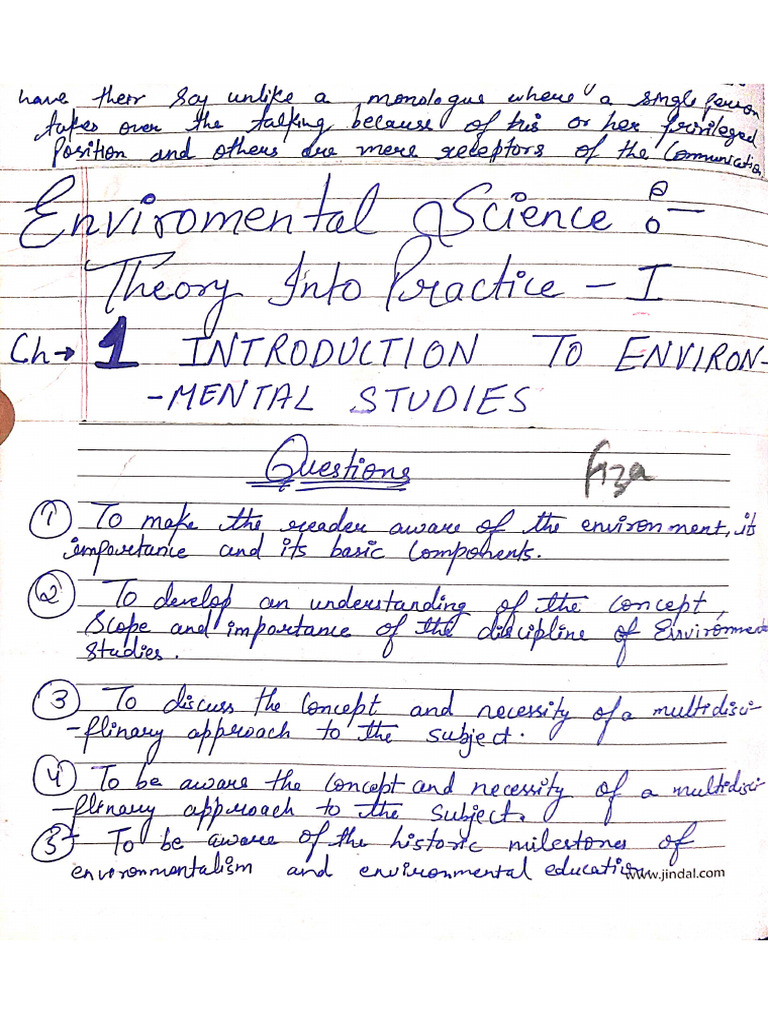 have their say unlike a monologue where a single person
takes over the talking because of his or her privileged
Position and others are mere receptors of the Communication
Enviromental Science :-
Theory Into Practice - I
Ch → 1 INTRODUCTION TO ENVIRON-
-MENTAL STUDIES
Questions
Fiza
① To make the reader aware of the environment, its
importance and its basic Components.
② To develop an understanding of the concept,
Scope and importance of the discipline of Environment
Studies.
③ To discuss the Concept and necessity of a multidisci-
-plinary approach to the subject.
④ To be aware the concept and necessity of a multidisci-
-plinary approach to the subject.
⑤ To be aware of the historic milestones of
environmentalism and environmental education
www.jindal.com